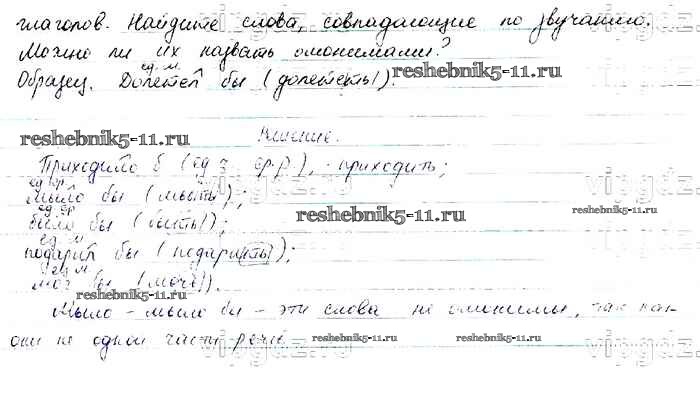 глаголов. Найдите слова, совпадающие по звучанию.
Можно ли их назвать омонимами?
ед. м.
Образец. Долетел бы (долететь).
reshebnik5-11.ru
reshebnik5-11.ru
Решение.
Приходило б (ед ср.р), - приходить;
ед ср
мыло бы (мыть);
reshebnik5-11.ru
reshebnik5-11.ru
ед ср
было бы (быть);
ед. м
подарил бы (подарить);
ед м
мог бы (мочь).
reshebnik5-11.ru
vipgdz.
Мыло - мыло бы - эти слова не омонимы, так как
они не одной части речи.
reshebnik5-11.ru
reshebnik5-11.ru